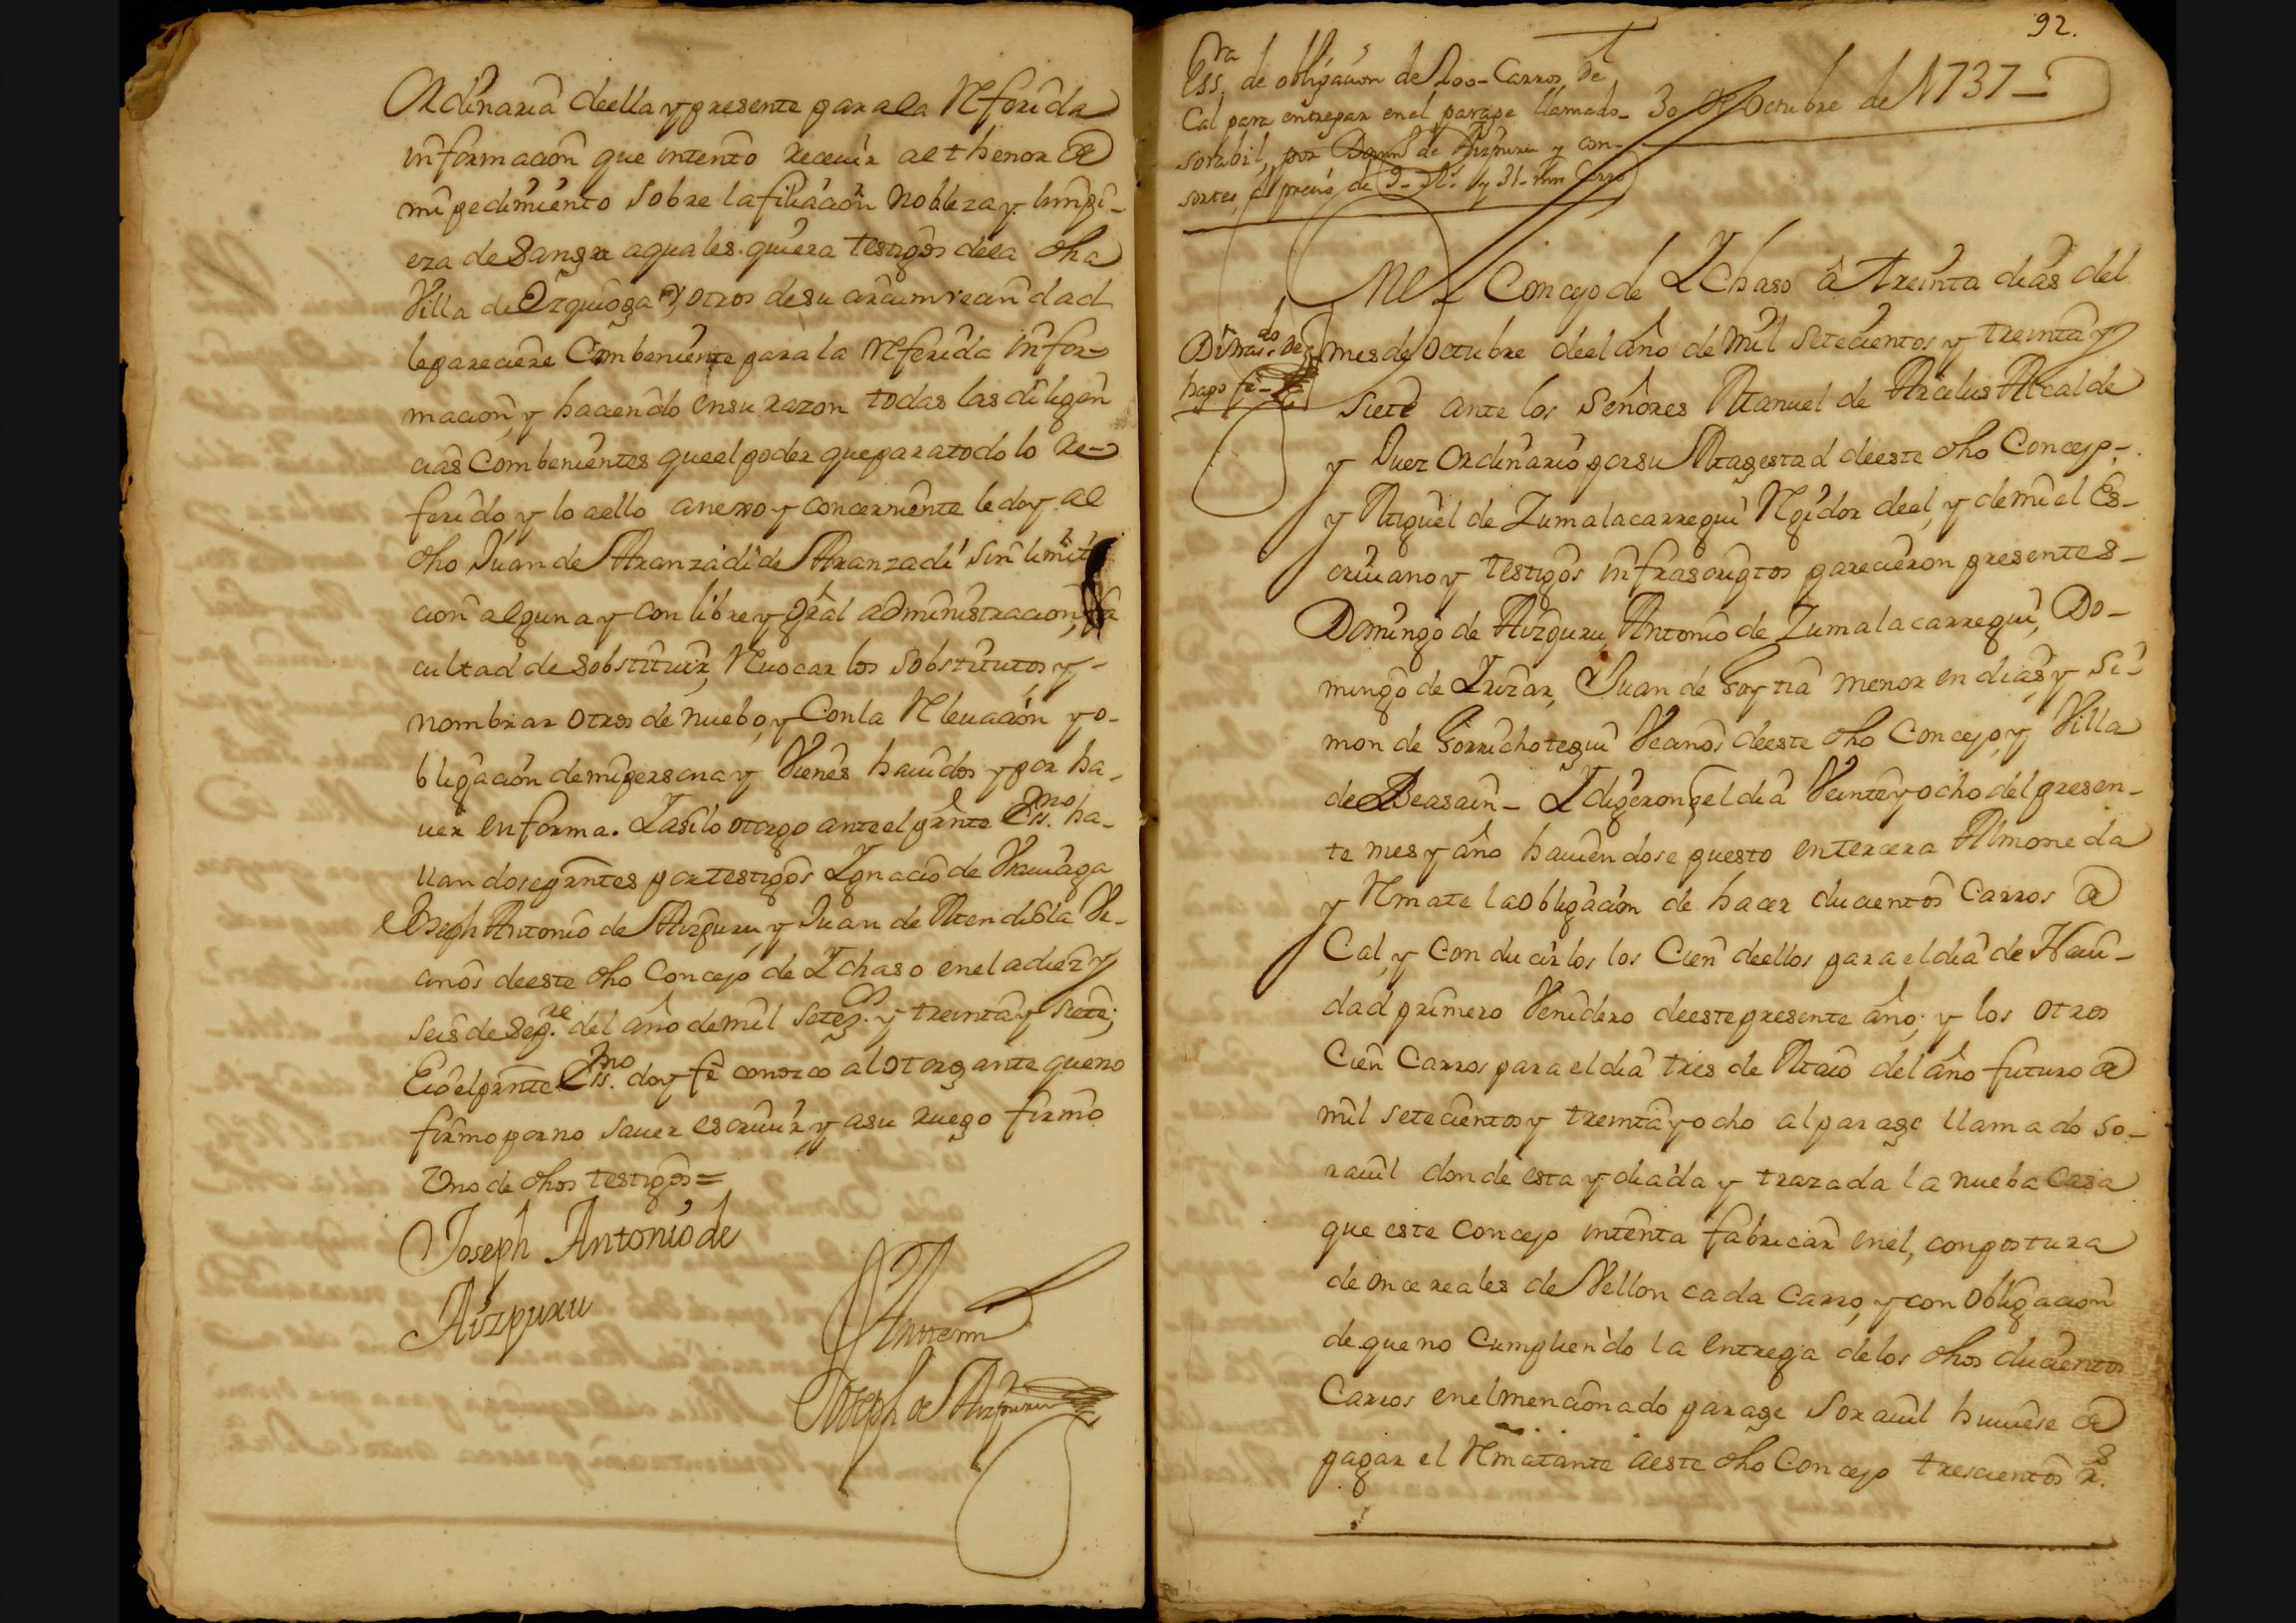 Ordinaria de ella y presente para la Referida
informacion que intento receuir al thenor de
mi pedimiento sobre la filiacion nobleza y limpi-
eza de Sangre a quales quiera testigos de la dha
Villa de Ezquioga, y otros de su circumvecindad
le pareciere Combeniente para la Referida infor-
macion, y haciendo en su razon todas las diligen
cias Combenientes que el poder que para todo lo re-
ferido y lo a ello anexo y concerniente le doy al
dho Juan de Aranzadi de Aranzadi sin limita
cion alguna y con libre y gral administracion, fa
cultad de sobstituir, Reuocar los sobstitutos y-
nombrar otros de nuebo, y Con la Releuacion y o-
bligacion de mi persona y Vienes hauidos y por ha-
uer en forma. Y asi lo otorgo ante el prnte Essno. ha-
llandose prntes por testigos Ygnacio de
Joseph Antonio de Aizpuru, y Juan de Mendiola Ve-
cinos de este dho Concejo de Ychaso en el a diez y
seis de Sepre. del año de mil setezs. y treinta y siete;
E io el prnte Essno. doy fe conozco al otorgante que no
firmo por no sauer escriuir y a su ruego firmo
Uno de dhos testigos =
Joseph Antonio de
Aizpuru
Antemi
Joseph de Aizpuru
92.
Essra. de obligacion de 200- Carros de
Cal para entregar en el parage llamado-
sorabil, por Domo. de Aizpuru y con-
sortes, al precio de 9- Rs. y 31- mrs Carro
30 de Octubre de 1737-
En el Concejo de Ychaso â treinta dias del
do de
hago fe-
mes de Octubre de el año de mil setecientos y treinta y
siete ante los Señores Manuel de Arcelus Alcalde
y Juez Ordinario por su Magestad de este dho Concejo-
y Miguel de Zumalacarregui Regidor de el, y de mi el Es-
criuano y testigos infrascriptos parecieron presentes-
Domingo de Aizpuru, Antonio de Zumalacarregui, Do-
mingo de Yrizar, Juan de Goytia menor en dias, y Si-
mon de Gorrichotegui Vecinos de este dho Concejo, y Villa
de Beasain- Y digeron qe el dia Veinte y ocho del presen-
te mes y año hauiendose puesto en tercera Almoneda
y Remate la obligacion de hacer ducientos Carros de
Cal, y Conducirlos los Cien de ellos para el dia de Naui-
dad primero Venidero de este presente año; y los otros
Cien Carros para el dia tres de Maio del año futuro de
mil setecientos y treinta y ocho al parage llamado so-
rauil donde esta ydeada y trazada la nueba Casa
que este Concejo intenta fabricar en el, con postura
de once reales de Vellon cada Carro, y con obligacion
de que no Cumpliendo la entrega de los dhos ducientos
Carros en el mencionado parage Sorauil huuiese de
pagar el Rematante a este dho Concejo trescientos rs.